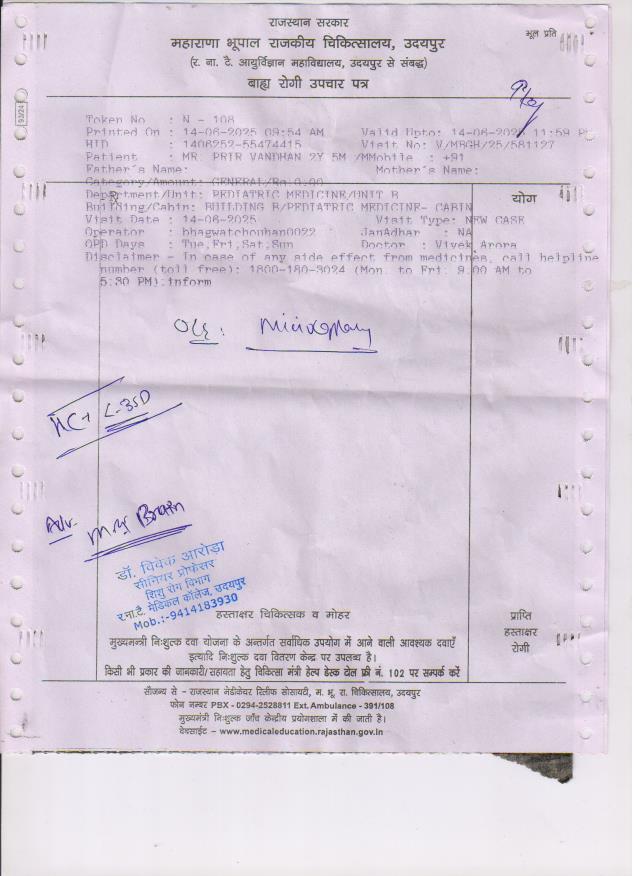 राजस्थान सरकार
भूल प्रति
महाराणा भूपाल राजकीय चिकित्सालय, उदयपुर
(र. ना. टै. आयुर्विज्ञान महाविद्यालय, उदयपुर से संबद्ध)
बाह्य रोगी उपचार पत्र
93/24
Token No : N - 108
Printed On : 14-06-2025 09:54 AM Valid Upto: 14-06-2025 11:59 P
HID : 1406252-55474415 Visit No: V/MBGH/25/581127
Patient : MR. PRIR VANDHAN 2Y 5M /MMobile : +91
Father's Name: Mother's Name:
Category/Amount: GENERAL/Rs.0.00
Department/Unit: PEDIATRIC MEDICINE/UNIT B
योग
Building/Cabin: BUILDING B/PEDIATRIC MEDICINE- CABIN
Visit Date : 14-06-2025 Visit Type: NEW CASE
Operator : bhagwatchouhan0022 JanAdhar : NA
OPD Days : Tue,Fri,Sat,Sun Doctor : Vivek Arora
Disclaimer - In case of any side effect from medicines, call helpline
number (toll free): 1800-180-3024 (Mon. to Fri. 9.00 AM to
5:30 PM).inform
HC→
Adv.
Brain
डॉ. विवेक आरोड़ा
सीनियर प्रोफेसर
शिशु रोग विभाग
र.ना.टै. मेडिकल कॉलेज, उदयपुर
Mob.:-9414183930
हस्ताक्षर चिकित्सक व मोहर
प्राप्ति
हस्ताक्षर
रोगी
मुख्यमन्त्री निःशुल्क दवा योजना के अन्तर्गत सर्वाधिक उपयोग में आने वाली आवश्यक दवाएँ
इत्यादि निःशुल्क दवा वितरण केन्द्र पर उपलब्ध है।
किसी भी प्रकार की जानकारी/सहायता हेतु चिकित्सा मंत्री हेल्प डेस्क टोल फ्री नं. 102 पर सम्पर्क करें
सौजन्य से - राजस्थान मेडीकेयर रिलीफ सोसायटी, म. भू. रा. चिकित्सालय, उदयपुर
फोन नम्बर PBX - 0294-2528811 Ext. Ambulance - 391/108
मुख्यमंत्री निःशुल्क जाँच केन्द्रीय प्रयोगशाला में की जाती है।
वेबसाईट - www.medicaleducation.rajasthan.gov.in